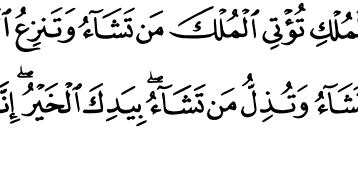 ٱلۡمُلۡكِ تُؤۡتِي ٱلۡمُلۡكَ مَن تَشَآءُ وَتَنزِعُ
تَشَآءُ وَتُذِلُّ مَن تَشَآءُۖ بِيَدِكَ ٱلۡخَيۡرُۖ